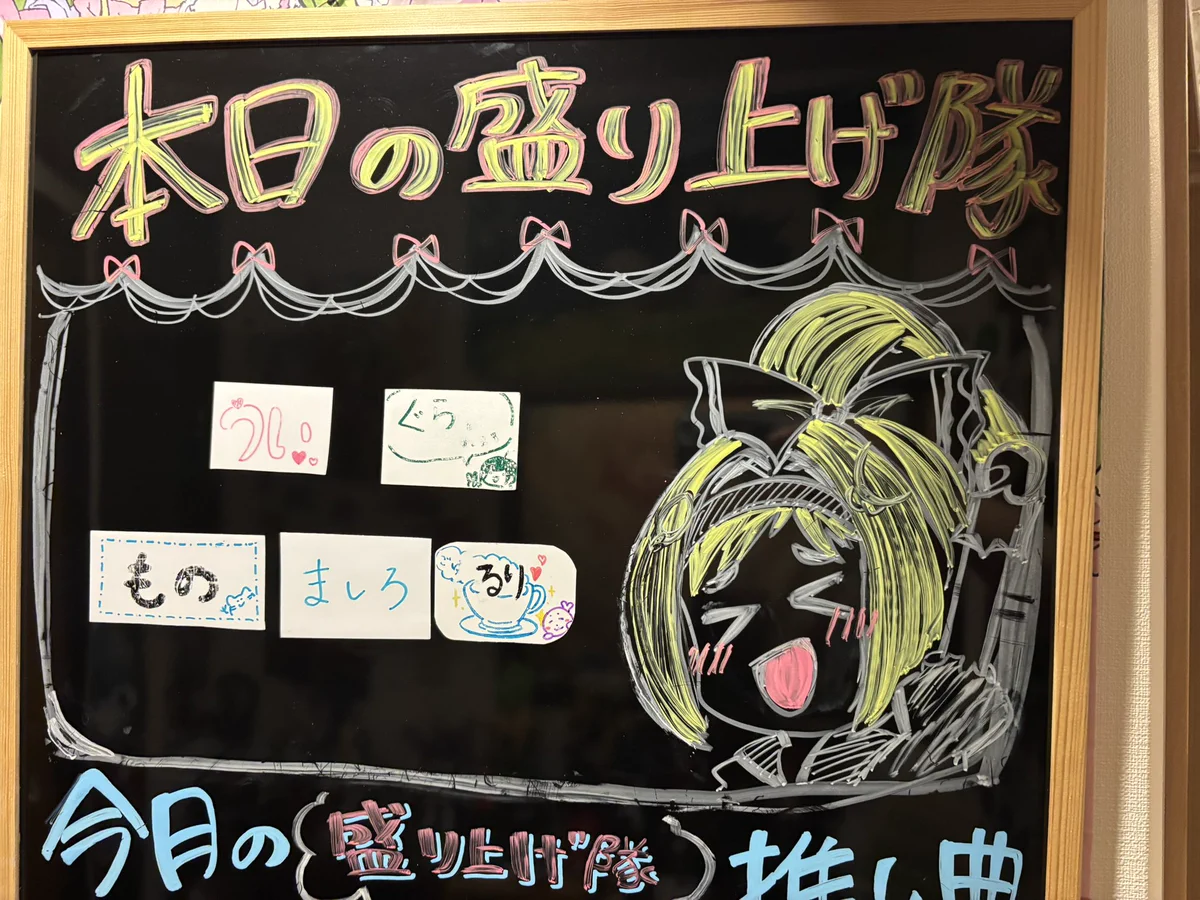 本日の盛り上げ隊
うい
ぐら
もの
ましろ
るり
今月の盛り上げ隊 推し曲